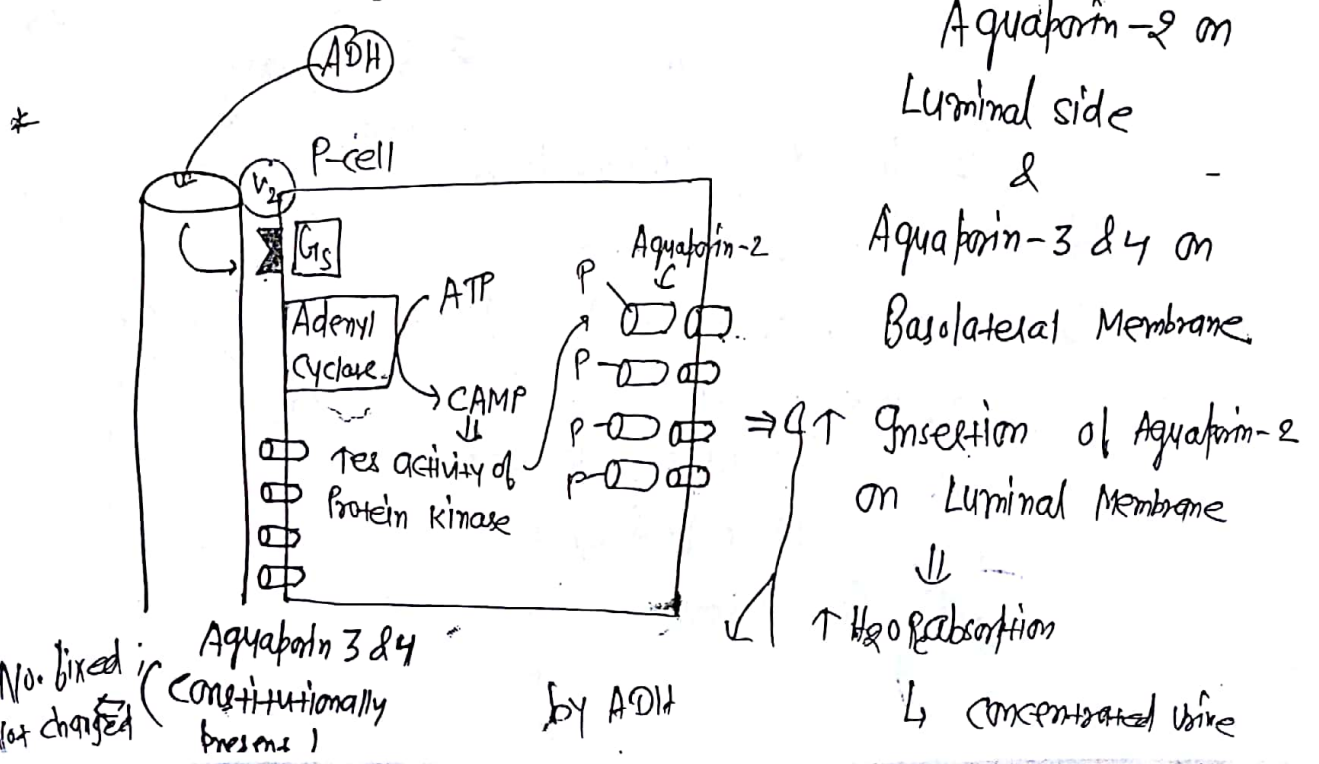 ADH
*
P-cell
V2
Gs
Adenyl
Cyclase
ATP
CAMP
⇓
↑es activity of
Protein kinase
Aquaporin-2
P
P
P
P
Aquaporin 3 & 4
(Constitutionally
present)
No. fixed
not changed
Aquaporin-2 on
Luminal side
&
Aquaporin-3 & 4 on
Basolateral Membrane
⇒ ↑ Insertion of Aquaporin-2
on Luminal Membrane
⇓
↑ H2O Reabsorption
↳ concentrated urine
by ADH